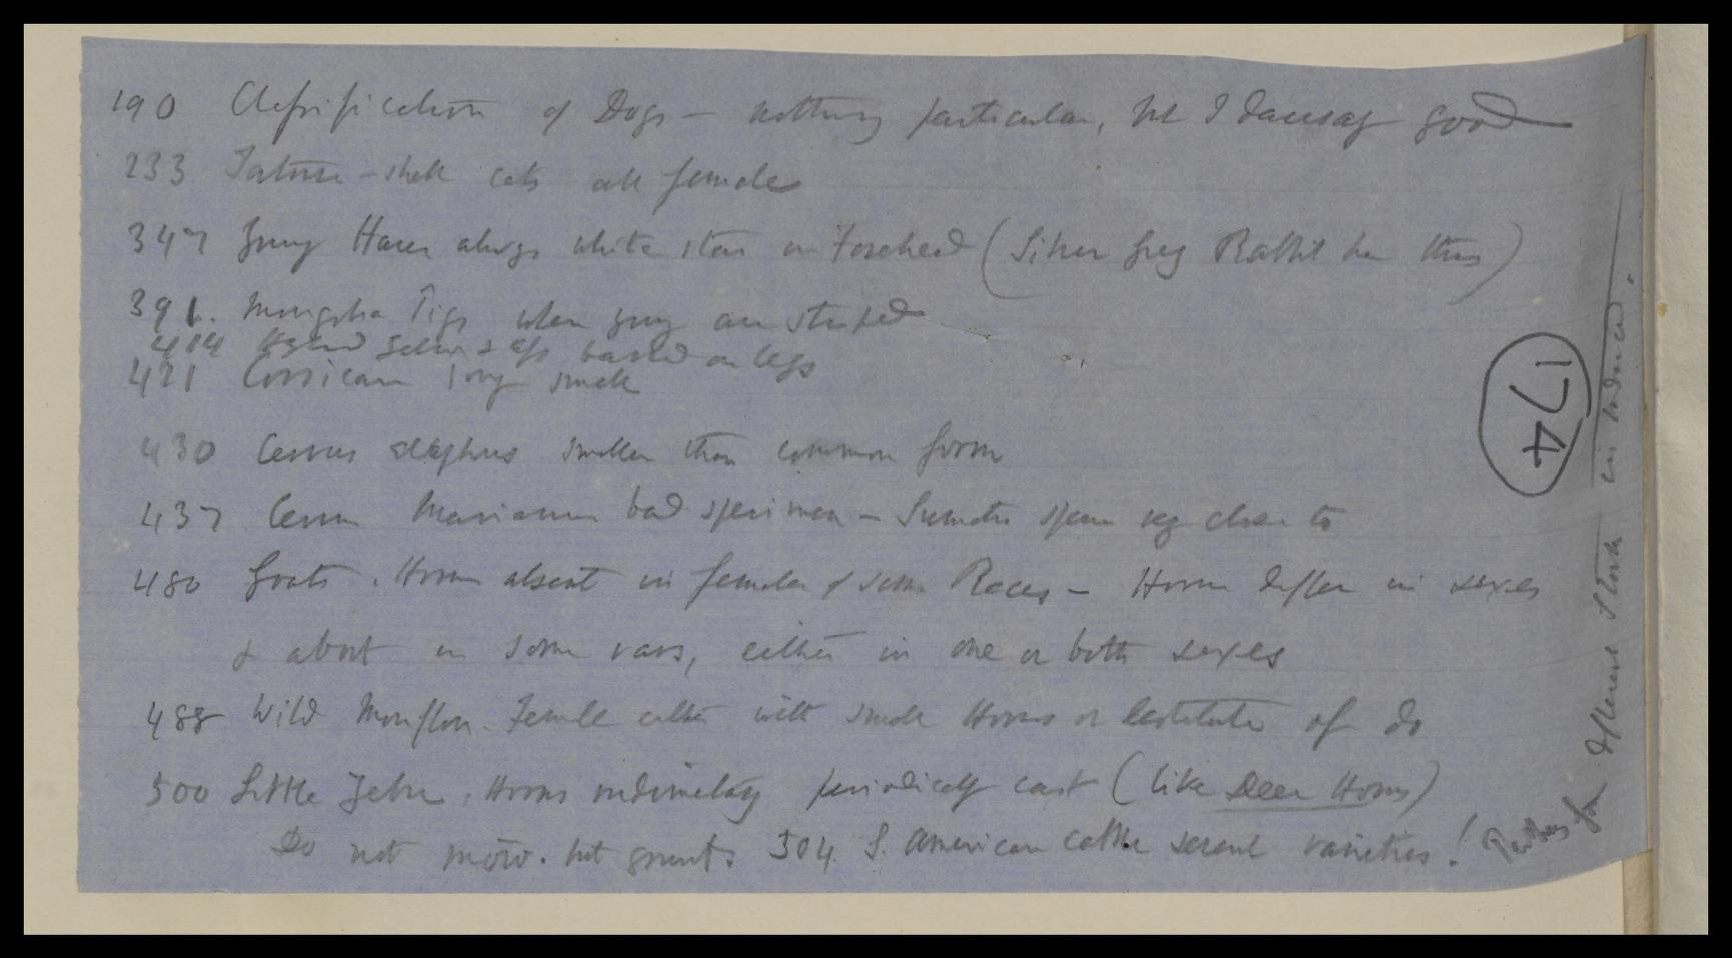 190 Classification of Dogs — nothing particular, but I daresay good
233 Tortoise-shell cats all females
347 Young Hares always white star on forehead (Silver Grey Rabbit has this)
391. Mongolia Pigs when young are striped
414 asses barred on legs
421 Corsican small
430 Cervus elaphus smaller than common form
437 Cervus Marianus bad specimen — Sumatra specimen very close to
480 Goats. Horns absent in females of some Races — Horns differ in sexes
& abort in some vars, either in one or both sexes
488 Wild Mouflon. Female either with small Horns or destitute of do
500 Little Zebu, Horns rudimentary periodically cast (like Deer Horns)
Do not moo. but grunt. 504. S. American cattle several varieties! Perhaps from different stock introduced.
174